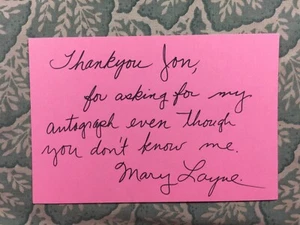 Thankyou Jon,
for asking for my
autograph even though
you don't know me.
Mary Layne.